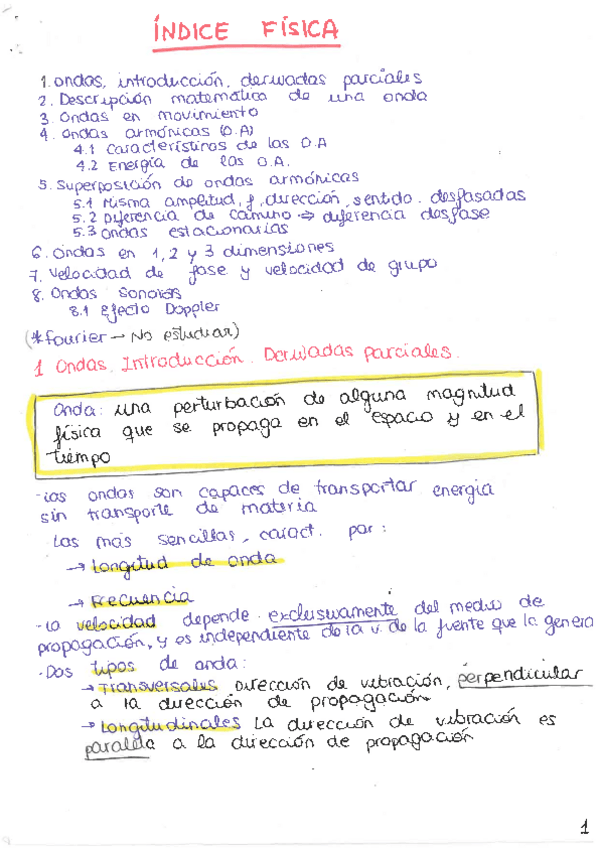 ÍNDICE FÍSICA
1. ondas, introducción, derivadas parciales
2. Descripción matemática de una onda
3. Ondas en movimiento
4. Ondas armónicas (O.A)
4.1 Características de las O.A
4.2 Energía de las O.A.
5. Superposición de ondas armónicas
5.1 Misma amplitud, f, dirección, sentido. desfasadas
5.2 Diferencia de camino ⇒ diferencia desfase
5.3 Ondas estacionarias
6. Ondas en 1, 2 y 3 dimensiones
7. Velocidad de fase y velocidad de grupo
8. Ondas Sonoras
8.1 Efecto Doppler
(*Fourier → No estudiar)
1 Ondas. Introducción. Derivadas parciales.
Onda: una perturbación de alguna magnitud
física que se propaga en el espacio y en el
tiempo
· Las ondas son capaces de transportar energía
sin transporte de materia
· Las más sencillas, caract. por:
→ Longitud de onda
→ Frecuencia
· La velocidad depende exclusivamente del medio de
propagación, y es independiente de la v. de la fuente que la genera
· Dos tipos de onda:
→ Transversales Dirección de vibración, perpendicular
a la dirección de propagación
→ Longitudinales La dirección de vibración es
paralela a la dirección de propagación
1